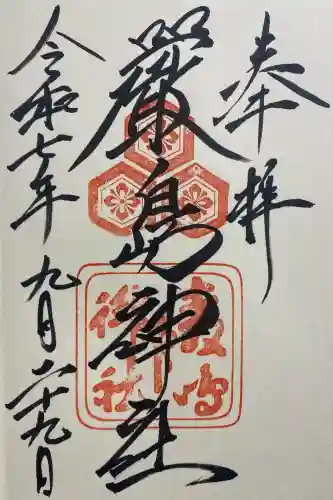 奉拝
嚴島神社
令和七年九月二十九日